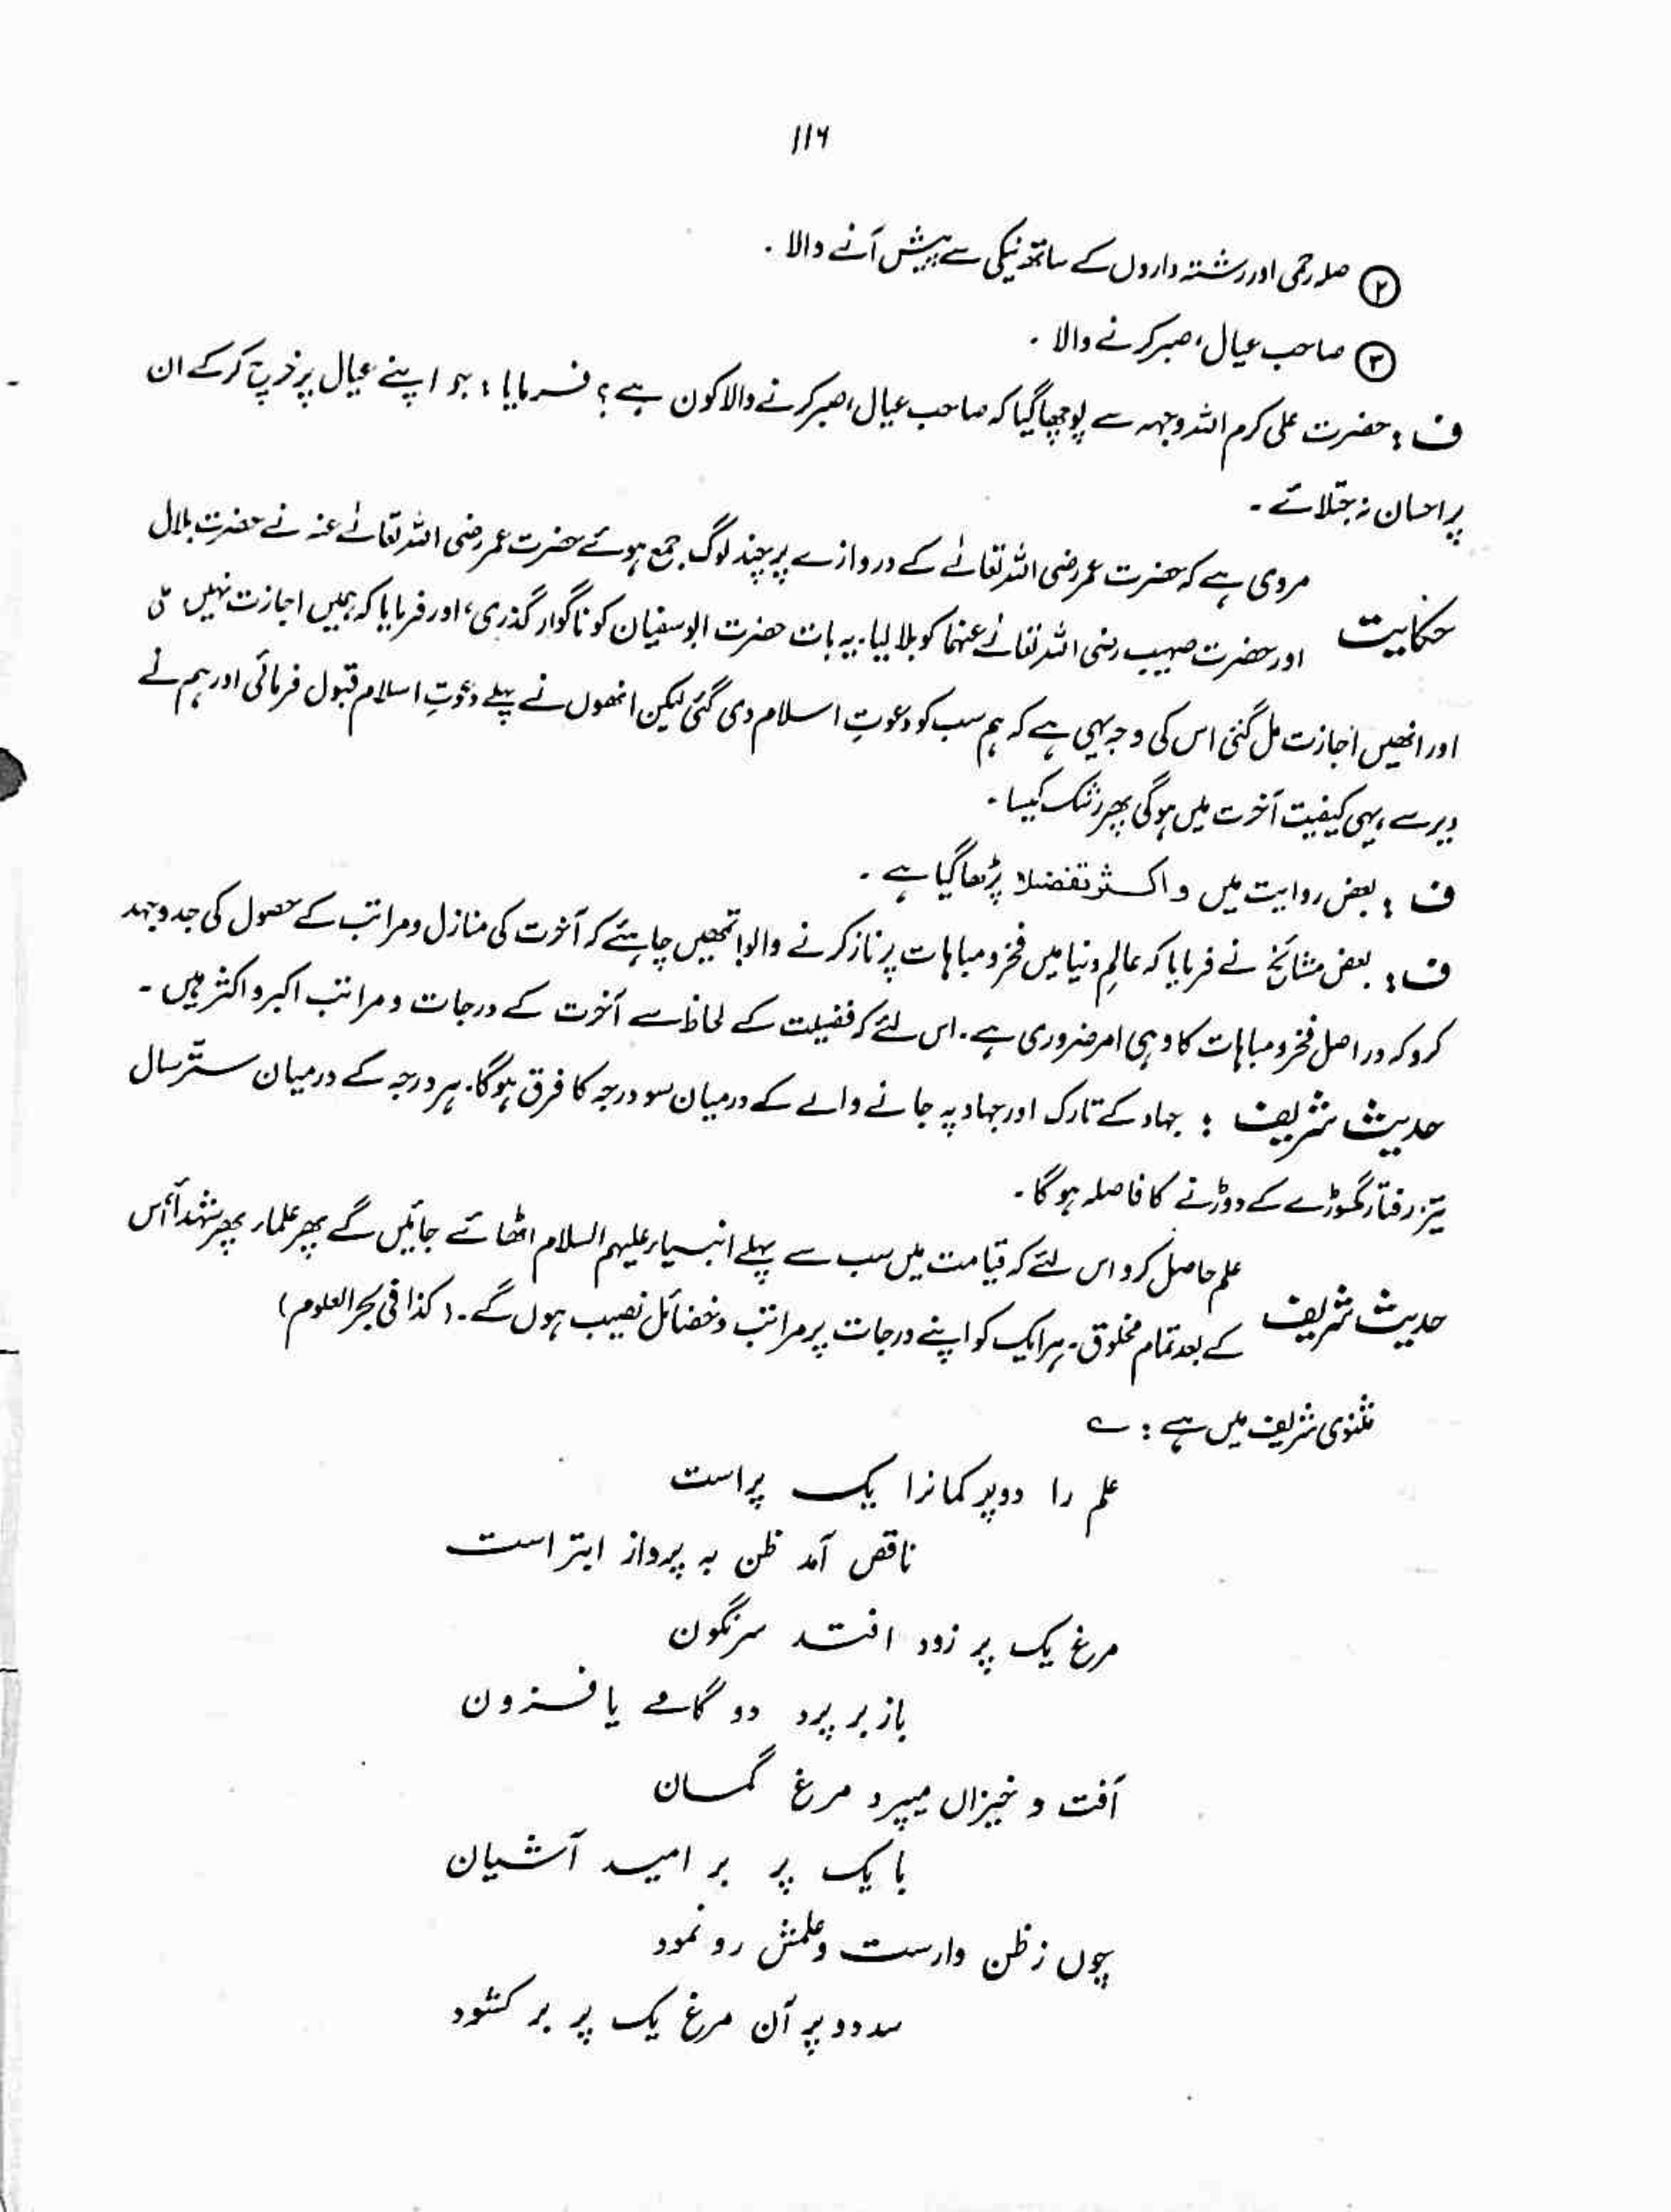 ۱۱۶
۲ صلہ رحمی اور رشتہ داروں کے ساتھ نیکی سے پیش آنے والا ۔
۳ صاحب عیال، صبر کرنے والا ۔
ف : حضرت علی کرم اللہ وجہہ سے پوچھا گیا کہ صاحب عیال، صبر کرنے والا کون ہے ؟ فرمایا : جو اپنے عیال پر خرچ کر کے ان
پر احسان نہ جتلائے ۔
مروی ہے کہ حضرت عمر رضی اللہ تعالٰے کے دروازے پر چند لوگ جمع ہوئے حضرت عمر رضی اللہ تعالٰے عنہ نے حضرت بلال
حکایت اور حضرت صہیب رضی اللہ تعالٰے عنہما کو بلا لیا۔ یہ بات حضرت ابوسفیان کو ناگوار گذری، اور فرمایا کہ ہمیں اجازت نہیں ملی
اور انھیں اجازت مل گئی اس کی وجہ یہی ہے کہ ہم سب کو دعوتِ اسلام دی گئی لیکن انھوں نے پہلے دعوتِ اسلام قبول فرمائی اور ہم نے
دیر سے، یہی کیفیت آخرت میں ہوگی پھر رشک کیسا ۔
ف : بعض روایت میں واکثر تفضلا پڑھا گیا ہے ۔
ف : بعض مشائخ نے فرمایا کہ عالمِ دنیا میں فخر و مباہات پر ناز کرنے والو! تمھیں چاہئے کہ آخرت کی منازل و مراتب کے حصول کی جدوجہد
کرو کہ در اصل فخر و مباہات کا وہی امر ضروری ہے ۔ اس لئے کہ فضیلت کے لحاظ سے آخرت کے درجات و مراتب اکبر و اکثر ہیں ۔
حدیث شریف : جہاد کے تارک اور جہاد پہ جانے والے کے درمیان سو درجہ کا فرق ہوگا۔ ہر درجہ کے درمیان ستّر سال
تیز رفتار گھوڑے کے دوڑنے کا فاصلہ ہوگا ۔
علم حاصل کرو اس لئے کہ قیامت میں سب سے پہلے انبیاء علیہم السلام اٹھائے جائیں گے پھر علماء پھر شہدأ، اس
حدیث شریف کے بعد تمام مخلوق۔ ہر ایک کو اپنے درجات پر مراتب و فضائل نصیب ہوں گے ۔ (کذا فی بحر العلوم)
مثنوی شریف میں ہے : ے
علم را دو پر کمانرا یک پر است
ناقص آمد ظن بہ پرواز ابتر است
مرغ یک پر زود افتد سرنگون
باز بر پرد دو گامے یا فزون
آفت و خیزاں میپرد مرغ گمان
با یک پر بر امید آشیان
چوں ز ظن وارست و علمش رو نمود
سد دو پر آن مرغ یک پر بر کشود